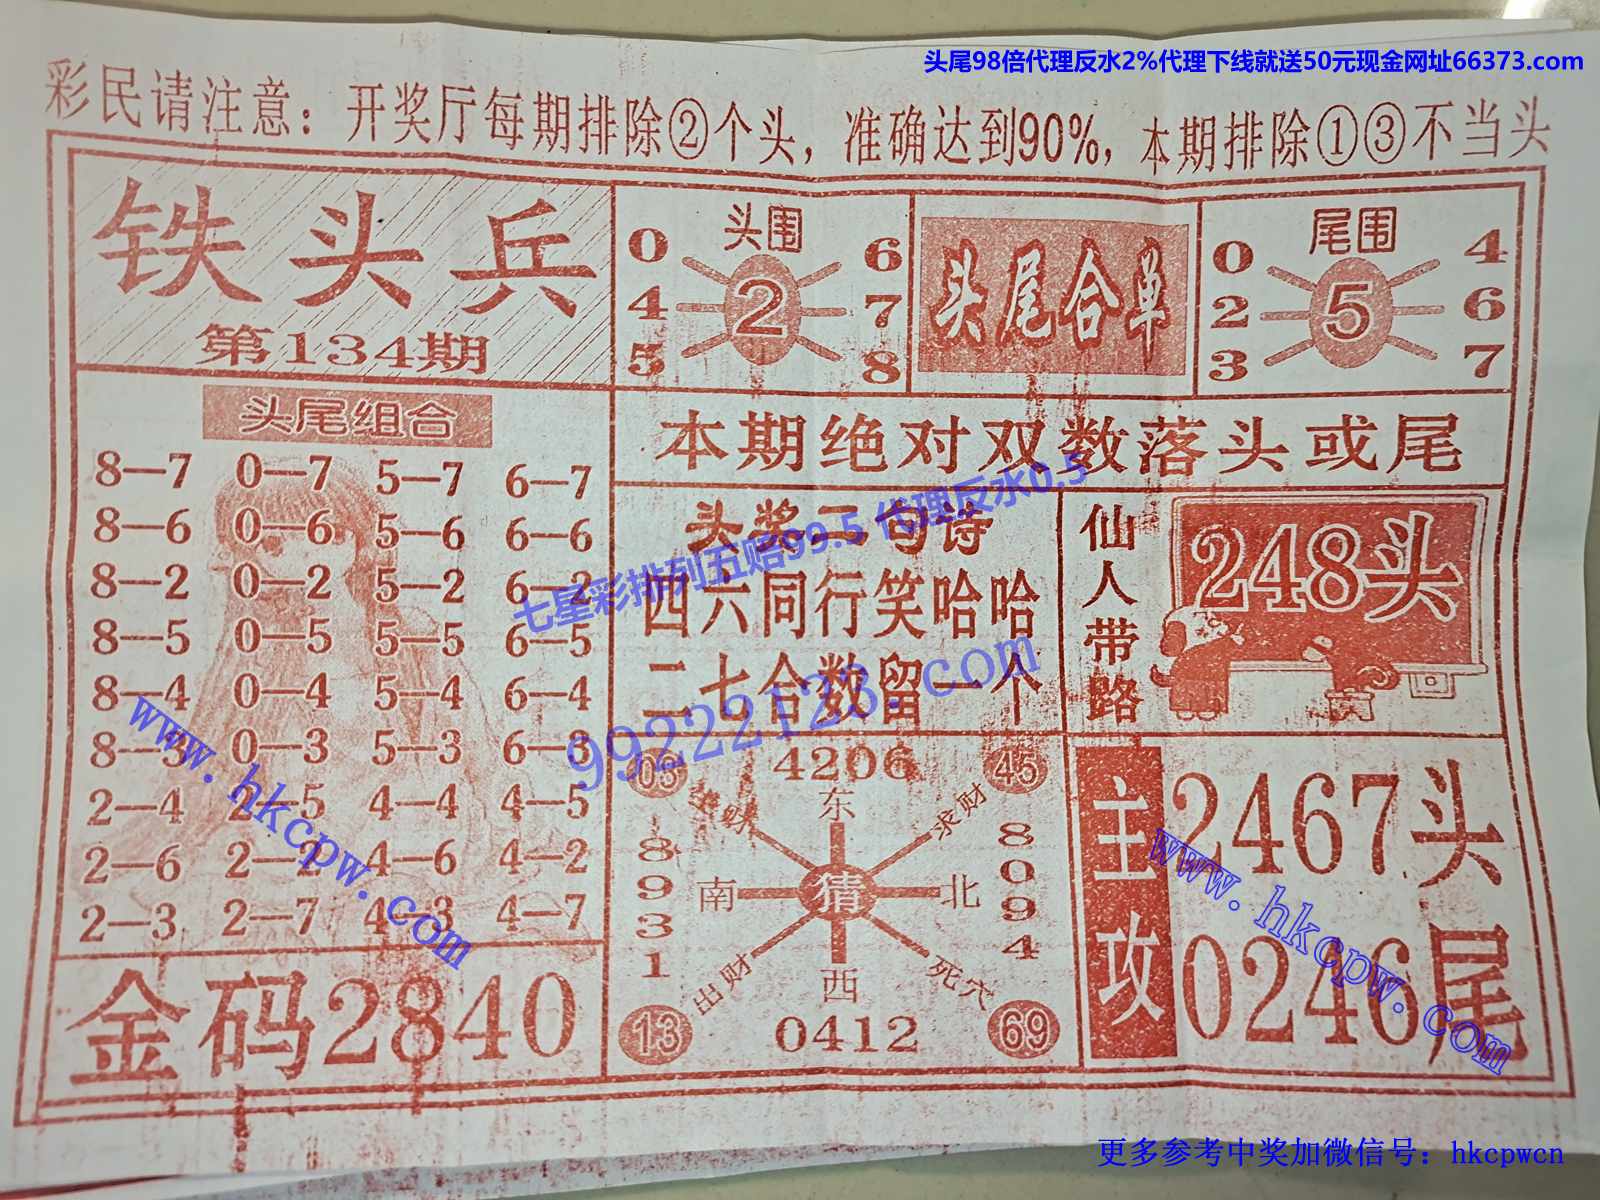 头尾98倍代理反水2%代理下线就送50元现金网址66373.com
彩民请注意：开奖厅每期排除②个头，准确达到90%，本期排除①③不当头
铁头兵
第134期
头围
0 6
4 2 7
5 8
头尾合单
尾围
0 4
2 5 6
3 7
头尾组合
8—7 0—7 5—7 6—7
8—6 0—6 5—6 6—6
8—2 0—2 5—2 6—2
8—5 0—5 5—5 6—5
8—4 0—4 5—4 6—4
8—3 0—3 5—3 6—3
2—4 2—5 4—4 4—5
2—6 2—2 4—6 4—2
2—3 2—7 4—3 4—7
金码2840
本期绝对双数落头或尾
头奖二句诗
四六同行笑哈哈
二七合数留一个
七星彩排列五赔99.5 代理反水0.5
99222123.com
仙人带路
248头
03 4206 45
东
求财
8931
南 猜 北
8094
出财
西
死穴
13 0412 69
主攻
2467头
0246尾
www.hkcpw.com
www.hkcpw.com
更多参考中奖加微信号：hkcpwcn